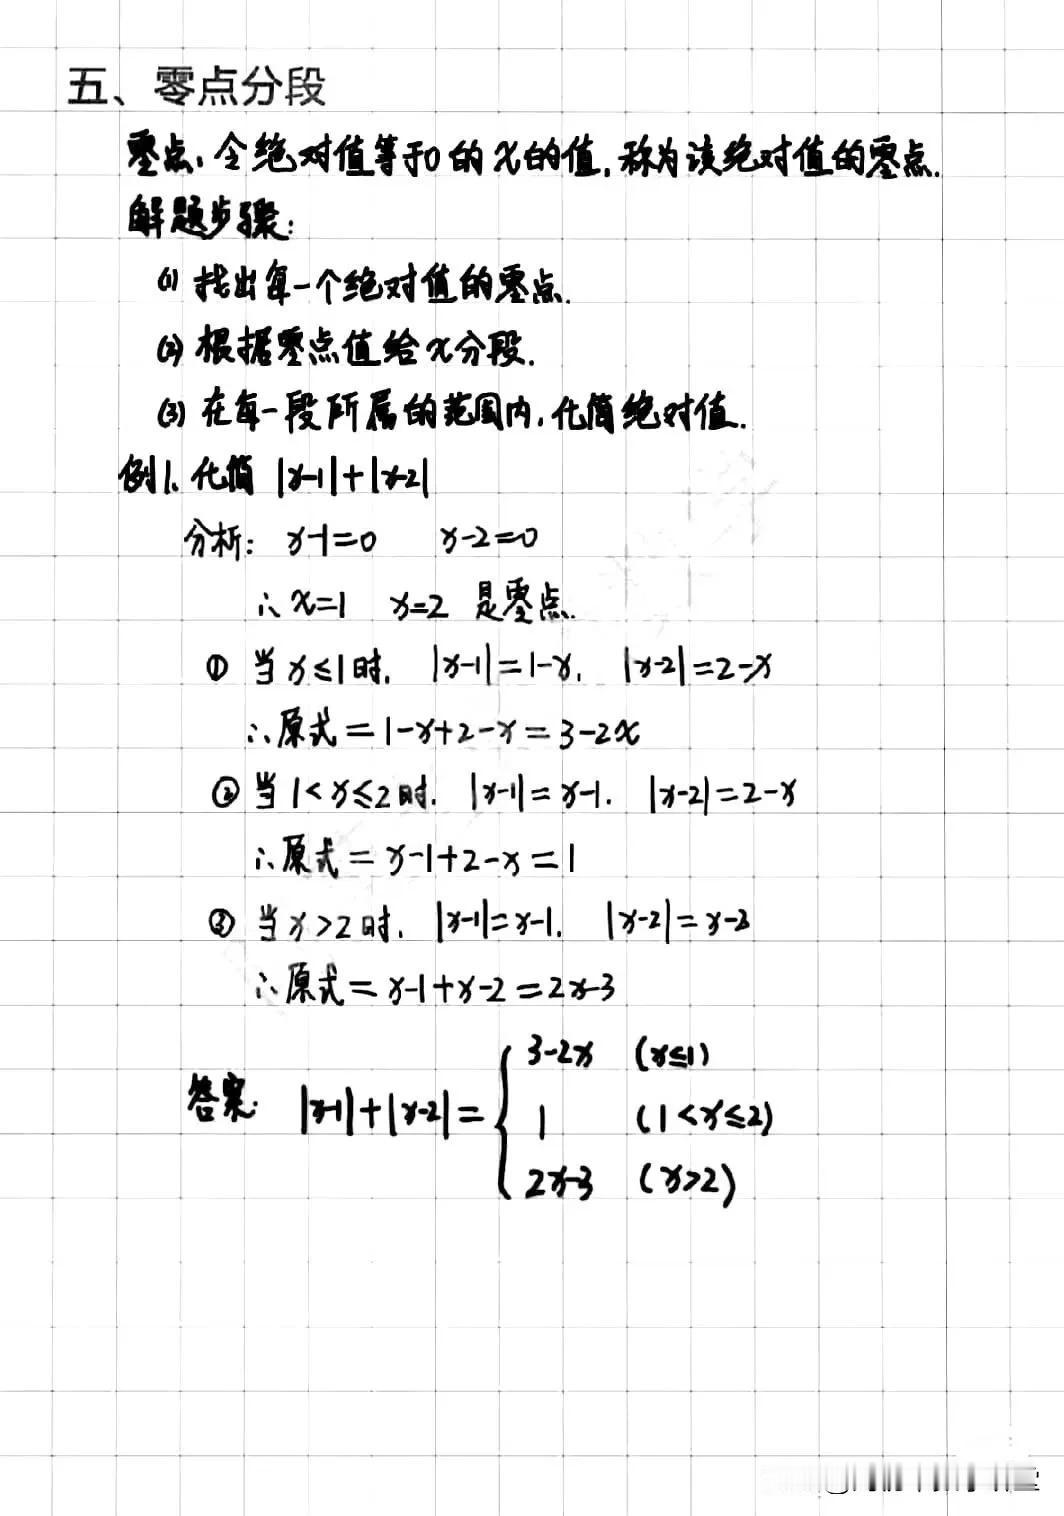 五、零点分段
零点:令绝对值等于0的x的值,称为该绝对值的零点.
解题步骤:
(1) 找出每一个绝对值的零点.
(2) 根据零点值给x分段.
(3) 在每一段所属的范围内,化简绝对值.
例1. 化简 |x-1|+|x-2|
分析: x-1=0 x-2=0
∴x=1 x=2 是零点.
① 当x≤1时, |x-1|=1-x, |x-2|=2-x
∴原式=1-x+2-x=3-2x
② 当1<x≤2时, |x-1|=x-1, |x-2|=2-x
∴原式=x-1+2-x=1
③ 当x>2时, |x-1|=x-1, |x-2|=x-2
∴原式=x-1+x-2=2x-3
3-2x (x≤1)
答案: |x-1|+|x-2|={ 1 (1<x≤2)
2x-3 (x>2)